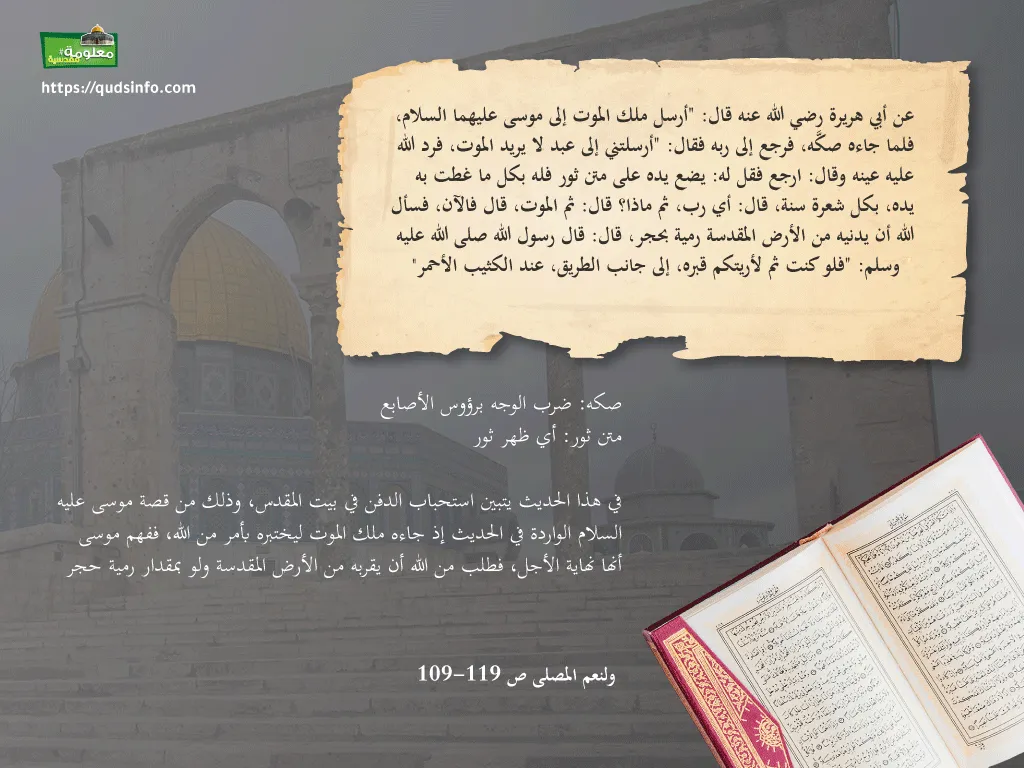 #معلومة
مقدسية
https://qudsinfo.com
عن أبي هريرة رضي الله عنه قال: "أرسل ملك الموت إلى موسى عليهما السلام،
فلما جاءه صكَّه، فرجع إلى ربه فقال: "أرسلتني إلى عبد لا يريد الموت، فرد الله
عليه عينه وقال: ارجع فقل له: يضع يده على متن ثور فله بكل ما غطت به
يده، بكل شعرة سنة، قال: أي رب، ثم ماذا؟ قال: ثم الموت، قال فالآن، فسأل
الله أن يدنيه من الأرض المقدسة رمية بحجر، قال: قال رسول الله صلى الله عليه
وسلم: "فلو كنت ثم لأريتكم قبره، إلى جانب الطريق، عند الكثيب الأحمر"
صكه: ضرب الوجه برؤوس الأصابع
متن ثور: أي ظهر ثور
في هذا الحديث يتبين استحباب الدفن في بيت المقدس، وذلك من قصة موسى عليه
السلام الواردة في الحديث إذ جاءه ملك الموت ليختبره بأمر من الله، ففهم موسى
أنها نهاية الأجل، فطلب من الله أن يقربه من الأرض المقدسة ولو بمقدار رمية حجر
ولنعم المصلى ص 119-109